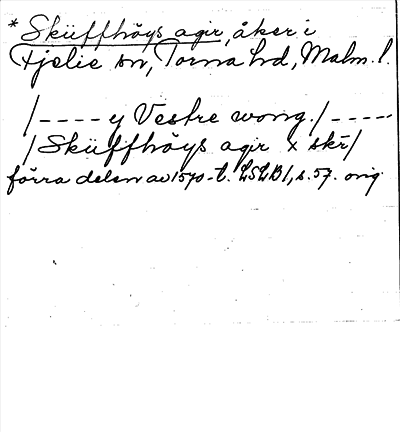 * Sküffhöys agir, åker i
Fjelie sn, Torna hd, Malm. l.
/---- y Vestre wong./-----
/Sküffhöys agir x skr/
förra delen av 1570-t. LSLB1, s. 57. orig.